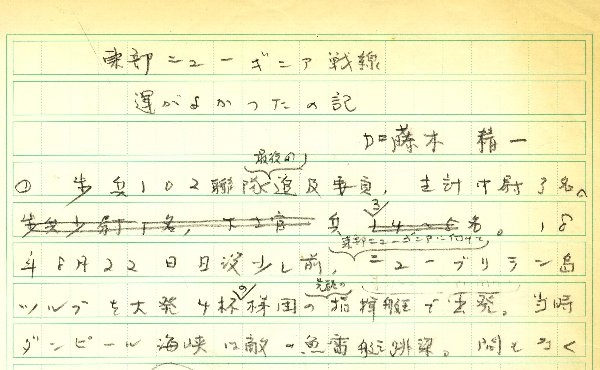 東部ニューギニア戦線
運がよかったの記
藤木 精一
最後の
① 歩兵102聯隊追及要員、主計中尉了名。
歩兵少尉了名、下士官 兵 名。18
東部ニューギニアに向けて
年8月22日日没少し前、ニューブリテン島
先頭の
ツルブを大発4杯 の指揮艇で出発。当時
ダンピール海峡は敵の魚雷艇跳梁。間もなく